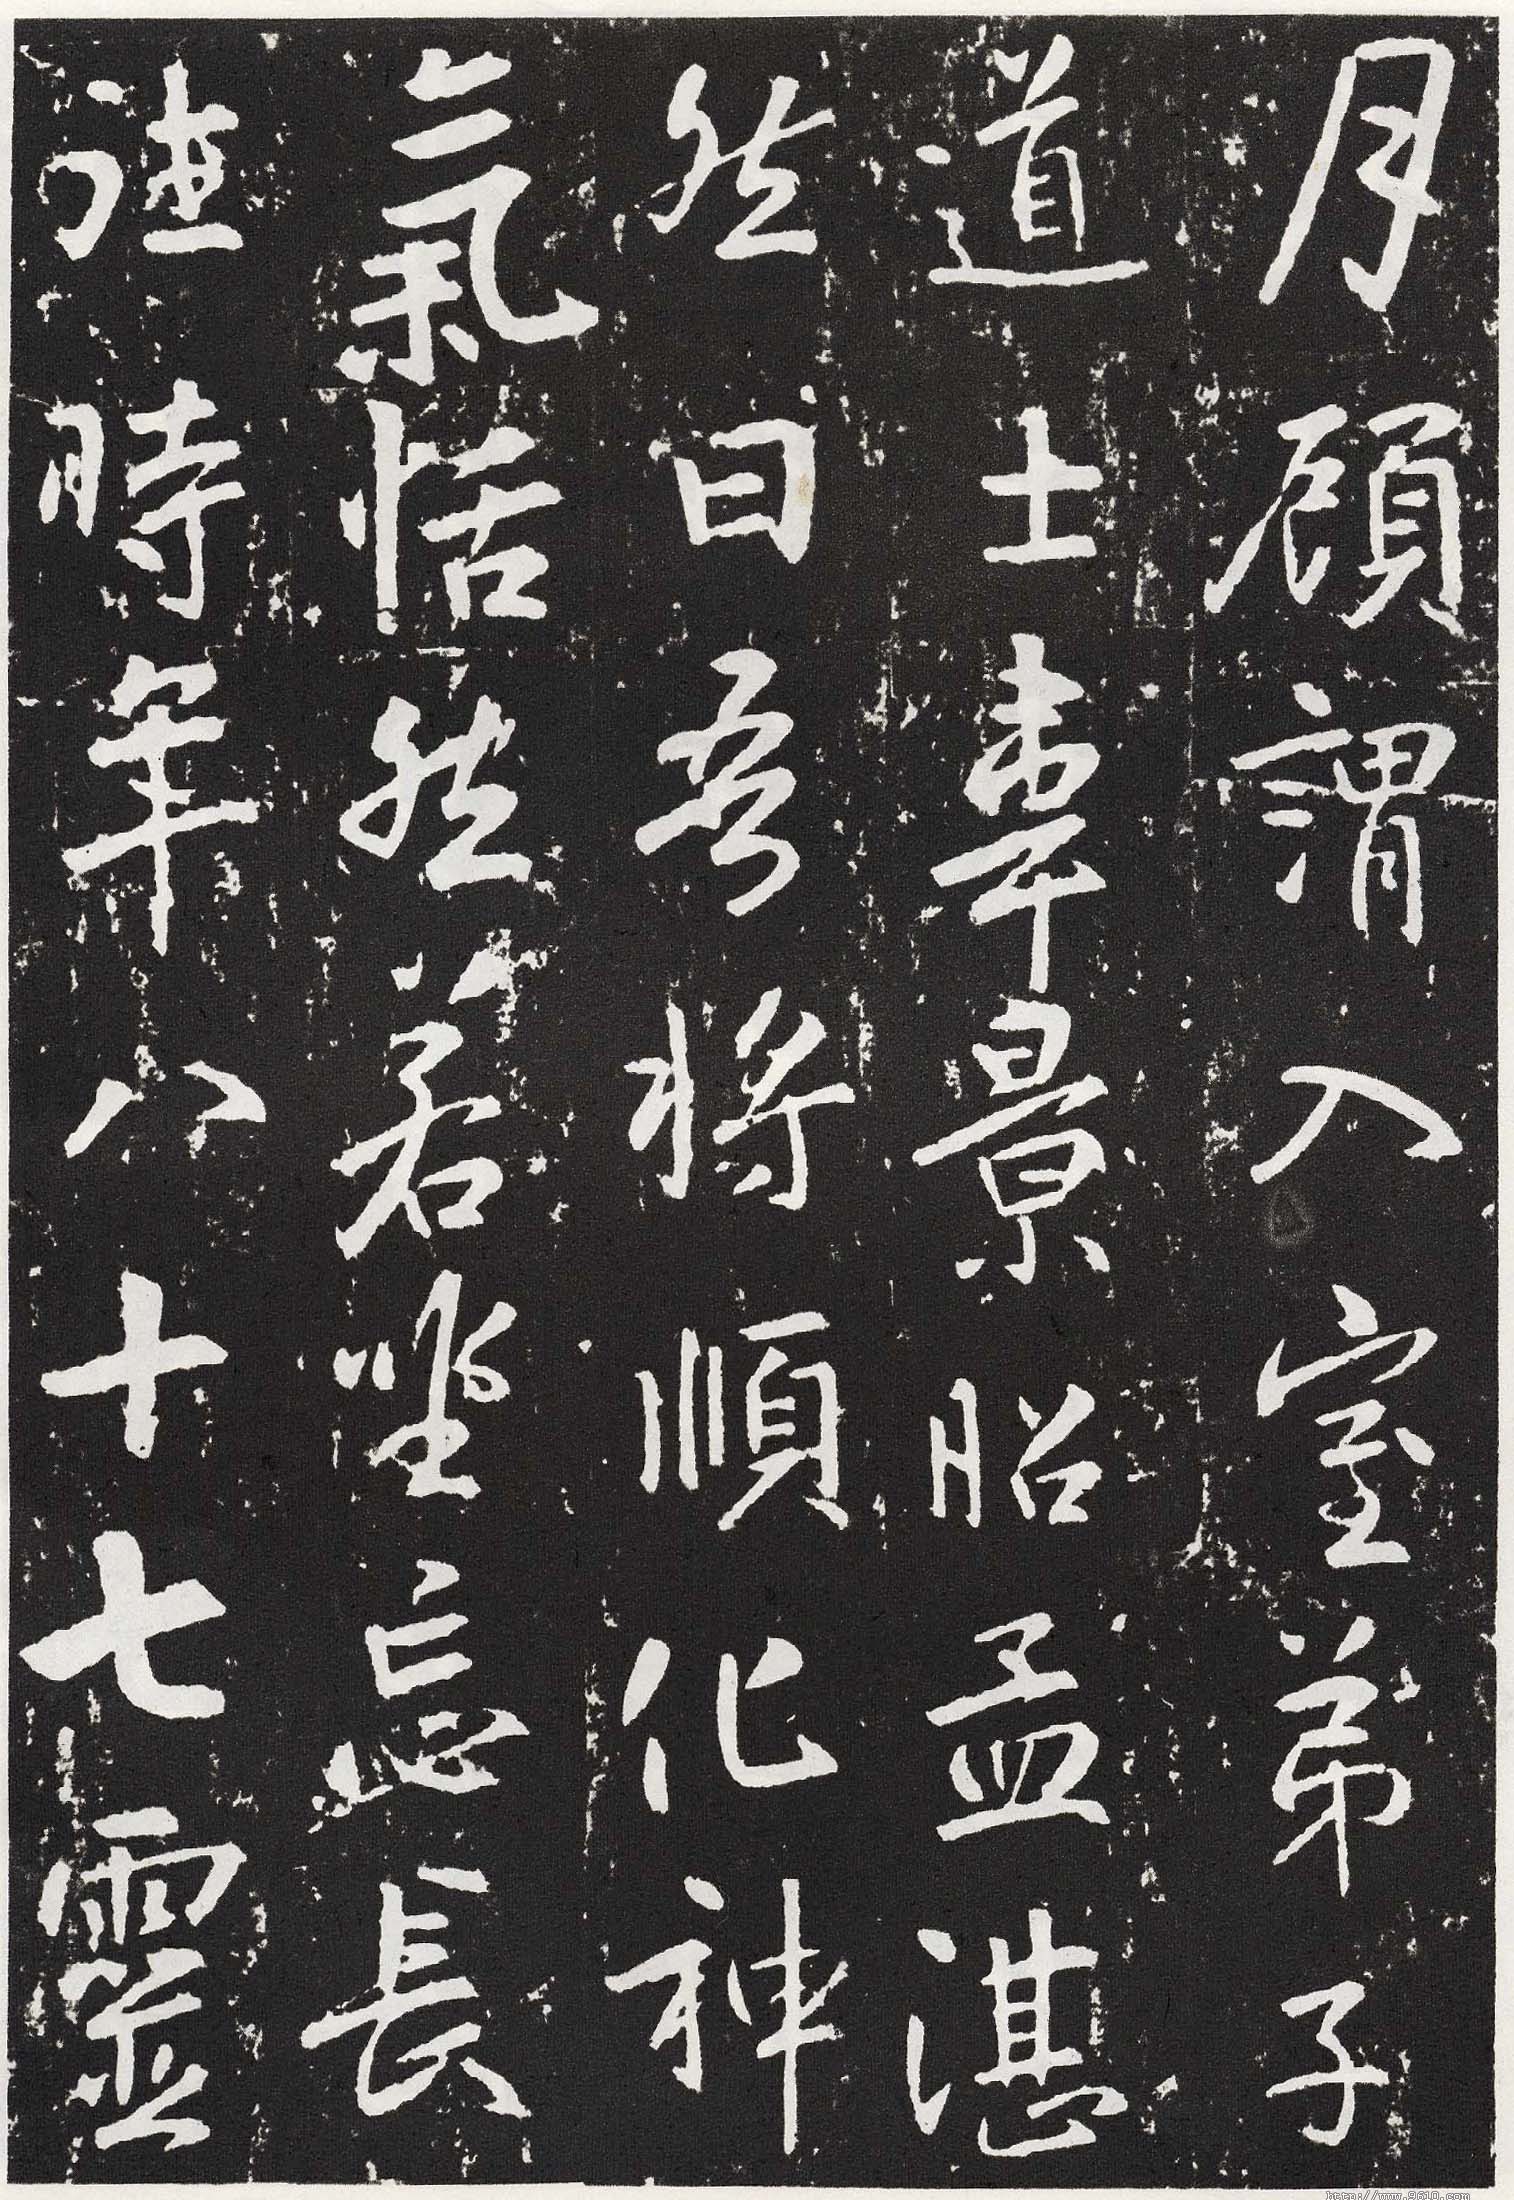 月顧謂入室弟子
道士韋景昭孟湛
然曰吾將順化神
氣恬然若坐忘長
往時年八十七靈
http://www.9610.com